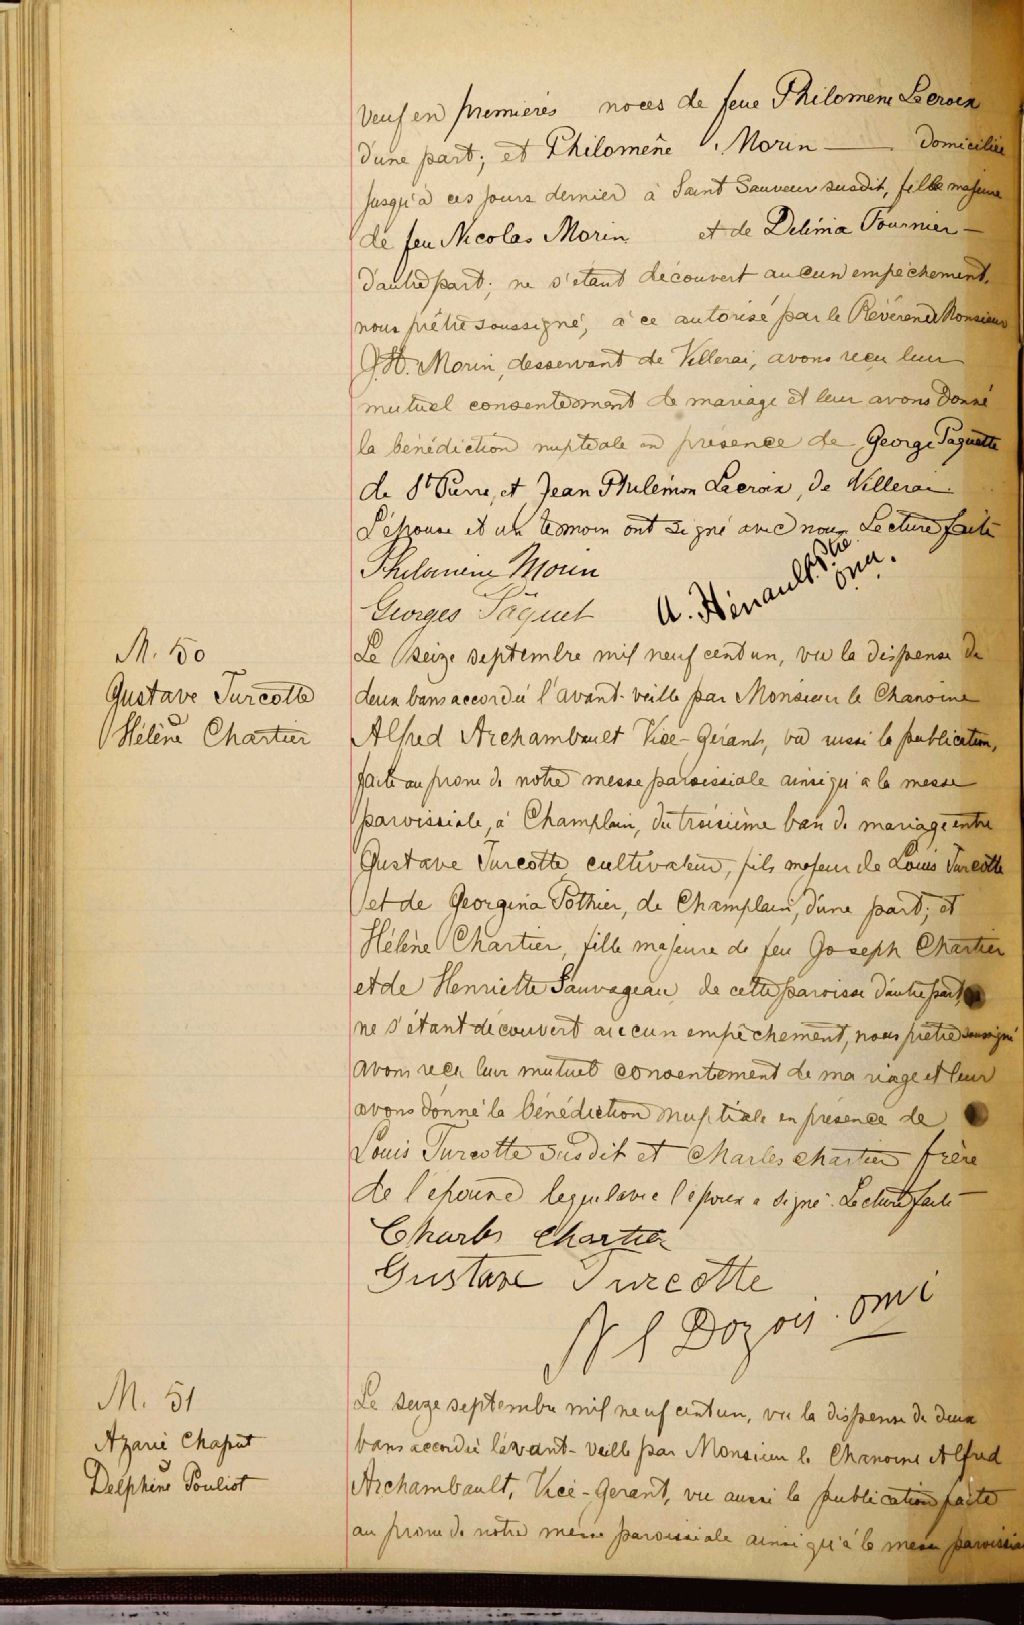 Veuf en premières noces de feue Philomène Lacroix
d'une part; et Philomène Morin — domiciliée
jusqu'à ces jours dernier à Saint Sauveur susdit, fille majeure
de feu Nicolas Morin et de Delima Fournier —
d'autre part; ne s'étant découvert aucun empêchement,
nous prêtre soussigné, à ce autorisé par le Révérend Monsieur
J.H. Morin, desservant de Villerai, avons reçu leur
mutuel consentement de mariage et leur avons donné
la bénédiction nuptiale en présence de George Paquette
de St Pierre, et Jean Philémon Lacroix, de Villerai.
L'épouse et un témoin ont signé avec nous Lecture faite
Philomène Morin
Georges Pâquet
A. Hénault Ptre
o.m.i.
M. 50
Gustave Turcotte
&
Hélène Chartier
Le seize septembre mil neuf cent un, vu la dispense de
deux bans accordée l'avant-veille par Monsieur le Chanoine
Alfred Archambault Vice-Gérant, vu aussi la publication,
faite au prône de notre messe paroissiale ainsi qu'à la messe
paroissiale, à Champlain, du troisième ban de mariage entre
Gustave Turcotte, cultivateur, fils majeur de Louis Turcotte
et de Georgina Pothier, de Champlain, d'une part; et
Hélène Chartier, fille majeure de feu Joseph Chartier
et de Henriette Sauvageau, de cette paroisse d'autre part,
ne s'étant découvert aucun empêchement, nous prêtre soussigné
avons reçu leur mutuel consentement de mariage et leur
avons donné la bénédiction nuptiale en présence de
Louis Turcotte susdit et Charles Chartier frère
de l'épouse lequel avec l'époux a signé. Lecture faite —
Charles Chartier
Gustave Turcotte
N l Dozois. omi
M. 51
Azarié Chaput
&
Delphine Pouliot
Le seize septembre mil neuf cent un, vu la dispense de deux
bans accordée l'avant-veille par Monsieur le Chanoine Alfred
Archambault, Vice-Gérant, vu aussi la publication faite
au prône de notre messe paroissiale ainsi qu'à la messe paroissia